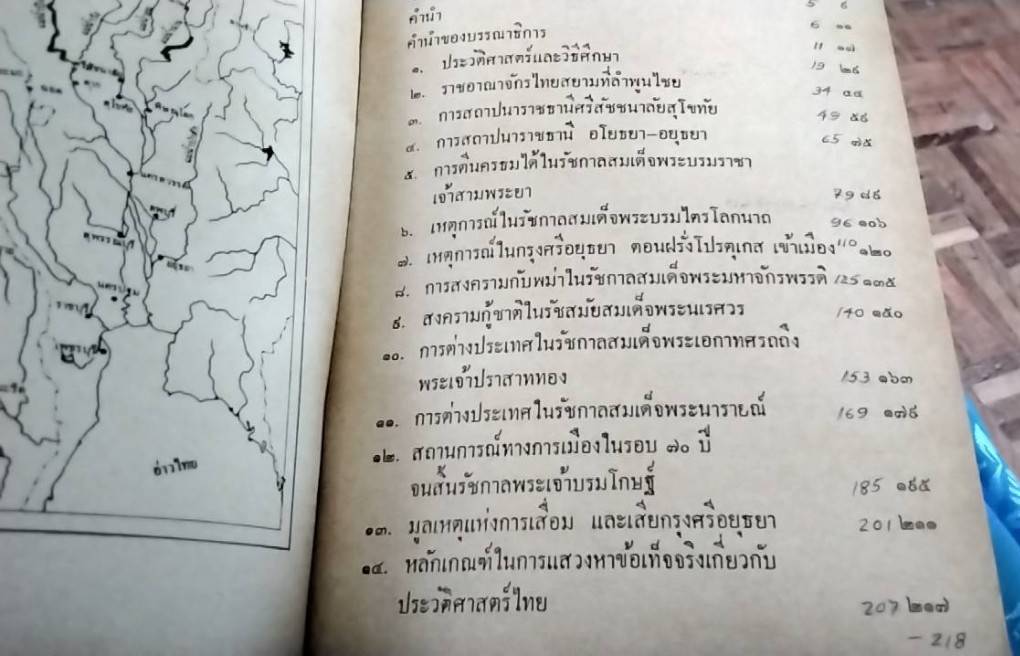 อ่าวไทย
ราชบุรี
เพชรบุรี
นครปฐม
สุพรรณบุรี
ลพบุรี
อยุธยา
นครสวรรค์
พิษณุโลก
สุโขทัย
ตาก
คำนำ 5 ๙
คำนำของบรรณาธิการ 6 ๑๑
๑. ประวัติศาสตร์และวิธีศึกษา 11 ๑๗
๒. ราชอาณาจักรไทยสยามที่ลำพูนไชย 19 ๒๙
๓. การสถาปนาราชธานีศรีสัชชนาลัยสุโขทัย 34 ๔๔
๔. การสถาปนาราชธานี อโยธยา-อยุธยา 49 ๕๙
๕. การตีนครธมได้ในรัชกาลสมเด็จพระบรมราชา 65 ๗๕
เจ้าสามพระยา
๖. เหตุการณ์ในรัชกาลสมเด็จพระบรมไตรโลกนาถ 79 ๘๙
๗. เหตุการณ์ในกรุงศรีอยุธยา ตอนฝรั่งโปรตุเกส เข้าเมือง 96 ๑๐๖
๘. การสงครามกับพม่าในรัชกาลสมเด็จพระมหาจักรพรรดิ 110 ๑๒๐
๙. สงครามกู้ชาติในรัชสมัยสมเด็จพระนเรศวร 125 ๑๓๕
๑๐. การต่างประเทศในรัชกาลสมเด็จพระเอกาทศรถถึง 140 ๑๕๐
พระเจ้าปราสาททอง 153 ๑๖๓
๑๑. การต่างประเทศในรัชกาลสมเด็จพระนารายณ์ 169 ๑๗๙
๑๒. สถานการณ์ทางการเมืองในรอบ ๗๐ ปี
จนสิ้นรัชกาลพระเจ้าบรมโกษฐ์ 185 ๑๙๕
๑๓. มูลเหตุแห่งการเสื่อม และเสียกรุงศรีอยุธยา 201 ๒๑๑
๑๔. หลักเกณฑ์ในการแสวงหาข้อเท็จจริงเกี่ยวกับ
ประวัติศาสตร์ไทย 207 ๒๑๗
- 218